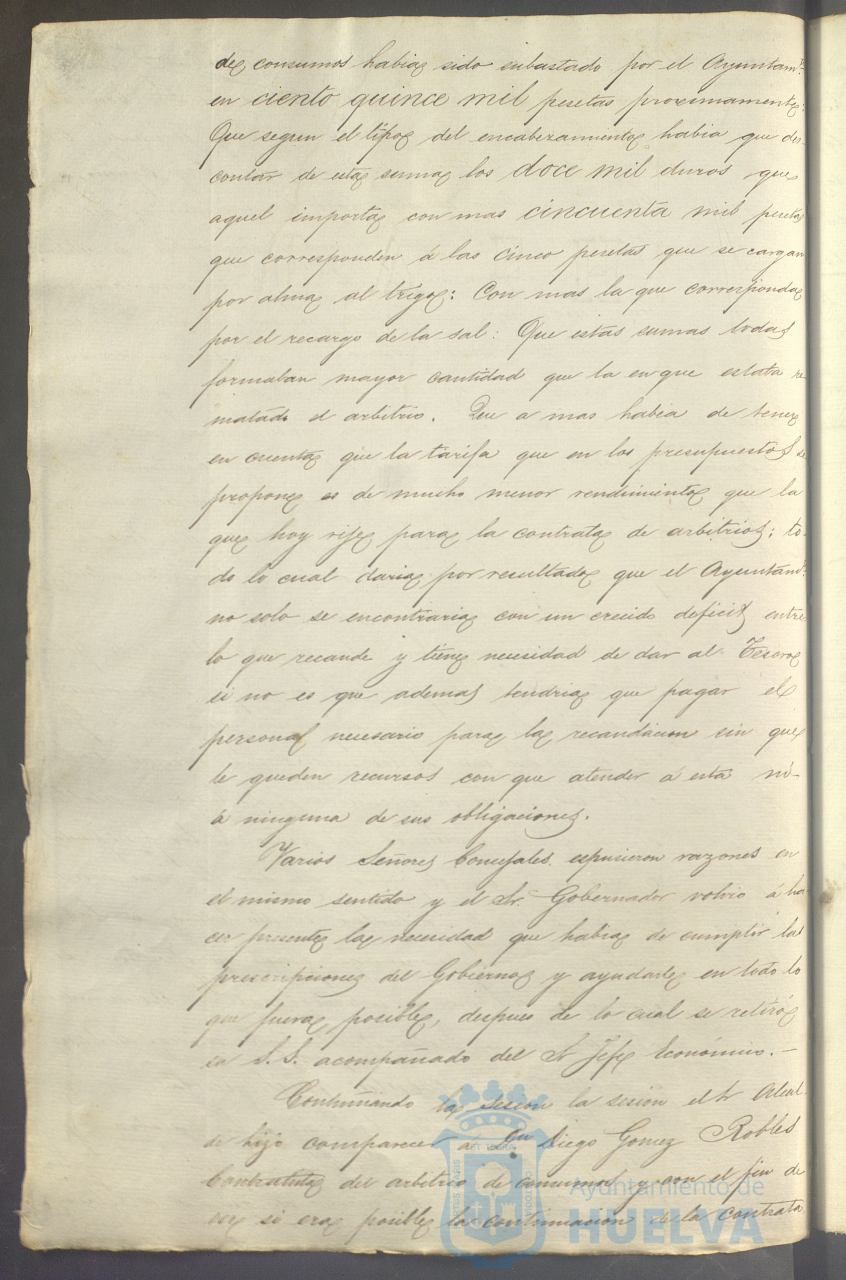 de consumos habia sido subastado por el Ayuntamto
en ciento quince mil pesetas proximamente:
Que segun el tipo del encabezamiento habia que des-
contar de esta suma los doce mil duros que
aquel importa con mas cincuenta mil pesetas
que corresponden á las cinco pesetas que se cargan
por alma al trigo: Con mas la que corresponda
por el recargo de la sal: Que estas sumas todas
formaban mayor cantidad que la en que estaba re-
matado el arbitrio. Que a mas habia de tener
en cuenta que la tarifa que en los presupuestos se
propone es de mucho menor rendimiento que la
que hoy rije para la contrata de arbitrios; to-
do lo cual daria por resultado que el Ayuntamto
no solo se encontraria con un crecido deficit entre
lo que recaude y tiene necesidad de dar al Tesoro
si no es que ademas tendria que pagar el
personal necesario para la recaudacion sin que
le queden recursos con que atender á esta ni
á ninguna de sus obligaciones.
Varios Señores Concejales espusieron razones en
el mismo sentido y el Sr. Gobernador volvio á ha-
cer presente la necesidad que habia de cumplir las
prescripciones del Gobierno y ayudarle en todo lo
que fuera posible, despues de lo cual se retiró
su S.S. acompañado del Sr Jefe Económico.—
Continuando la sesion la sesion el Sr Alcal-
de hizo comparecer a Dn Diego Gomez Robles
Contratista del arbitrio de consumos y con el fin de
ver si era posible la continuacion de la contrata
Ayuntamiento de
HUELVA